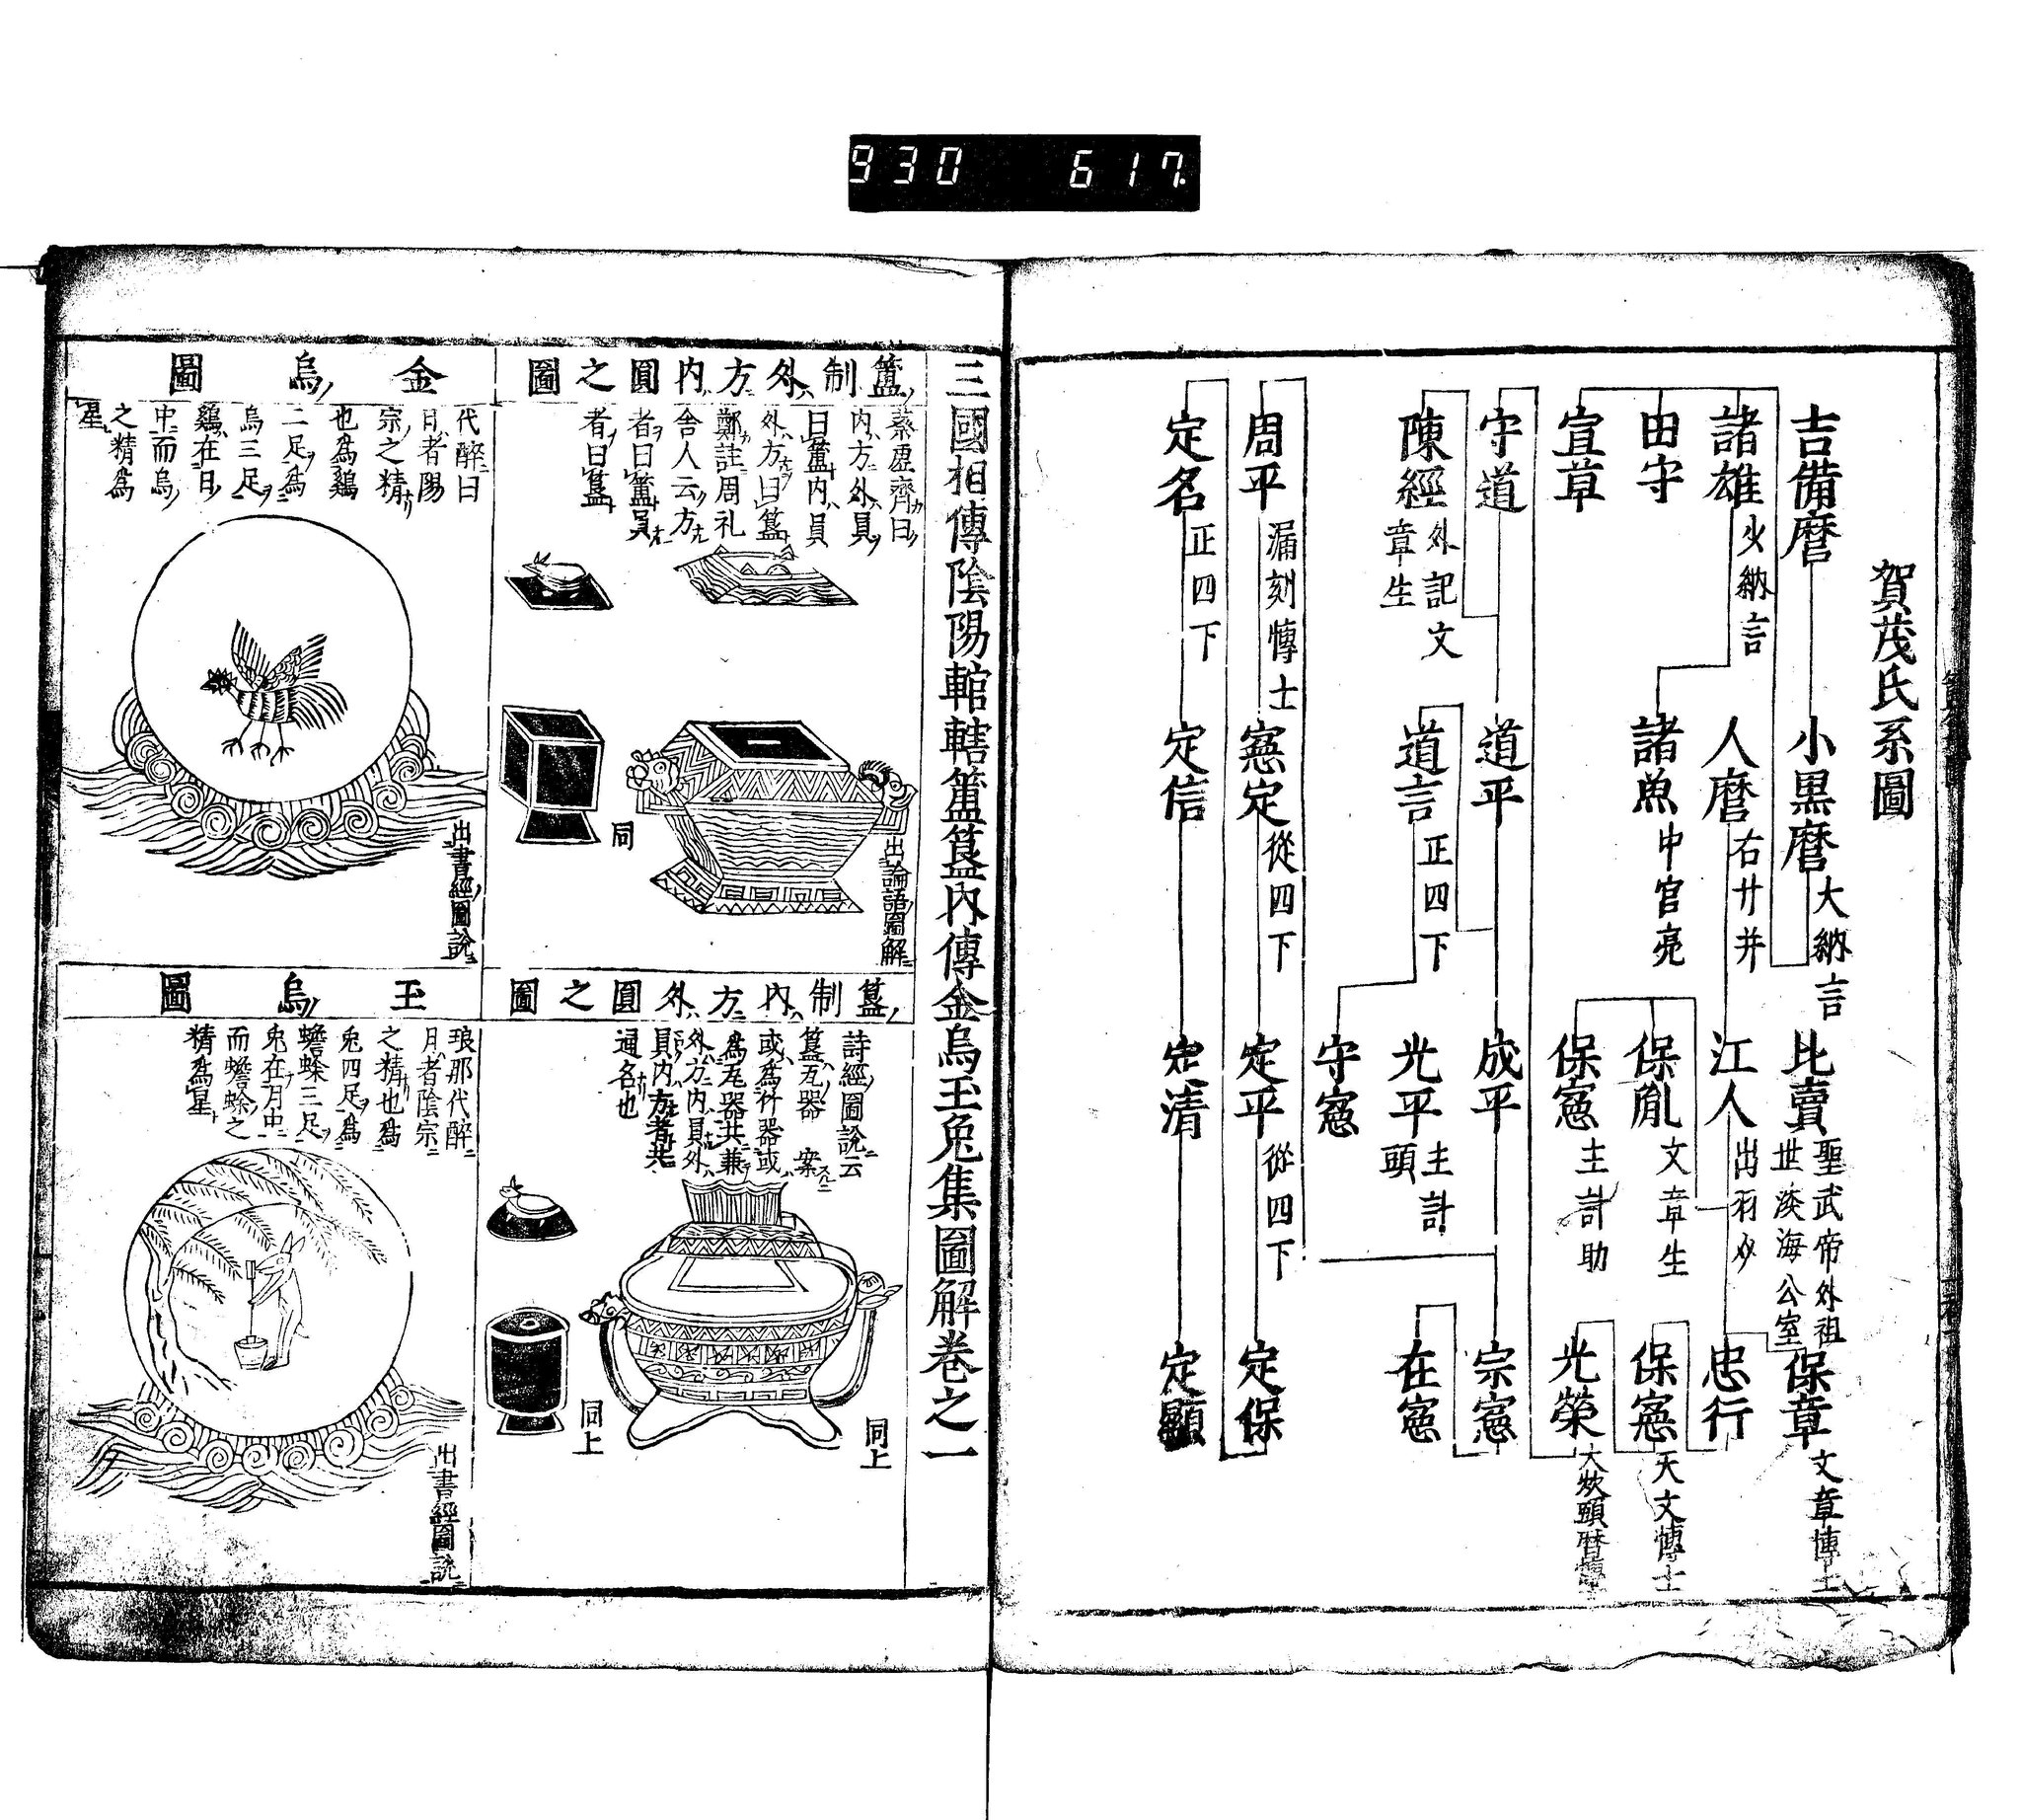 930 617.
賀茂氏系圖
吉備麿
小黒麿 大納言
比賣 聖武帝外祖
世淡海公室
保章 文章博士
諸雄 少納言
人麿 右廾并
江人 出羽少
忠行
田守
諸魚 中官亮
保胤 文章生
保憲 天文博士
宣草
保憲 主計助
光榮 大炊頭暦博士
守道
道平
成平
宗憲
陳經 外記文
章生
道言 正四下
光平 主計
頭
在憲
守憲
周平 漏刻博士
憲定 從四下
定平 從四下
定保
定名 正四下
定信
定清
定顯
三國相傳陰陽輨轄簠簋内傳金烏玉兔集圖解卷之一
簠制外方内圓之圖
蔡虚齊曰
内方外員
曰簠内員
外方曰簋
鄭註周礼
舎人云方
者曰簠員
者曰簋
出論語圖解
同
金烏圖
代醉曰
日者陽
宗之精
也為鷄
二足為
烏三足
鷄在日
中而烏
之精為
星
出書經圖説
簋制内方外圓之圖
詩經圖説云
簋瓦器 案
或為竹器或
為瓦器共兼
外方内員外
員内方者共
通名也
同上
同上
玉烏圖
琅那代醉
月者陰宗
之精也為
兔四足為
蟾蜍三足
兔在月中
而蟾蜍之
精為星
出書經圖説